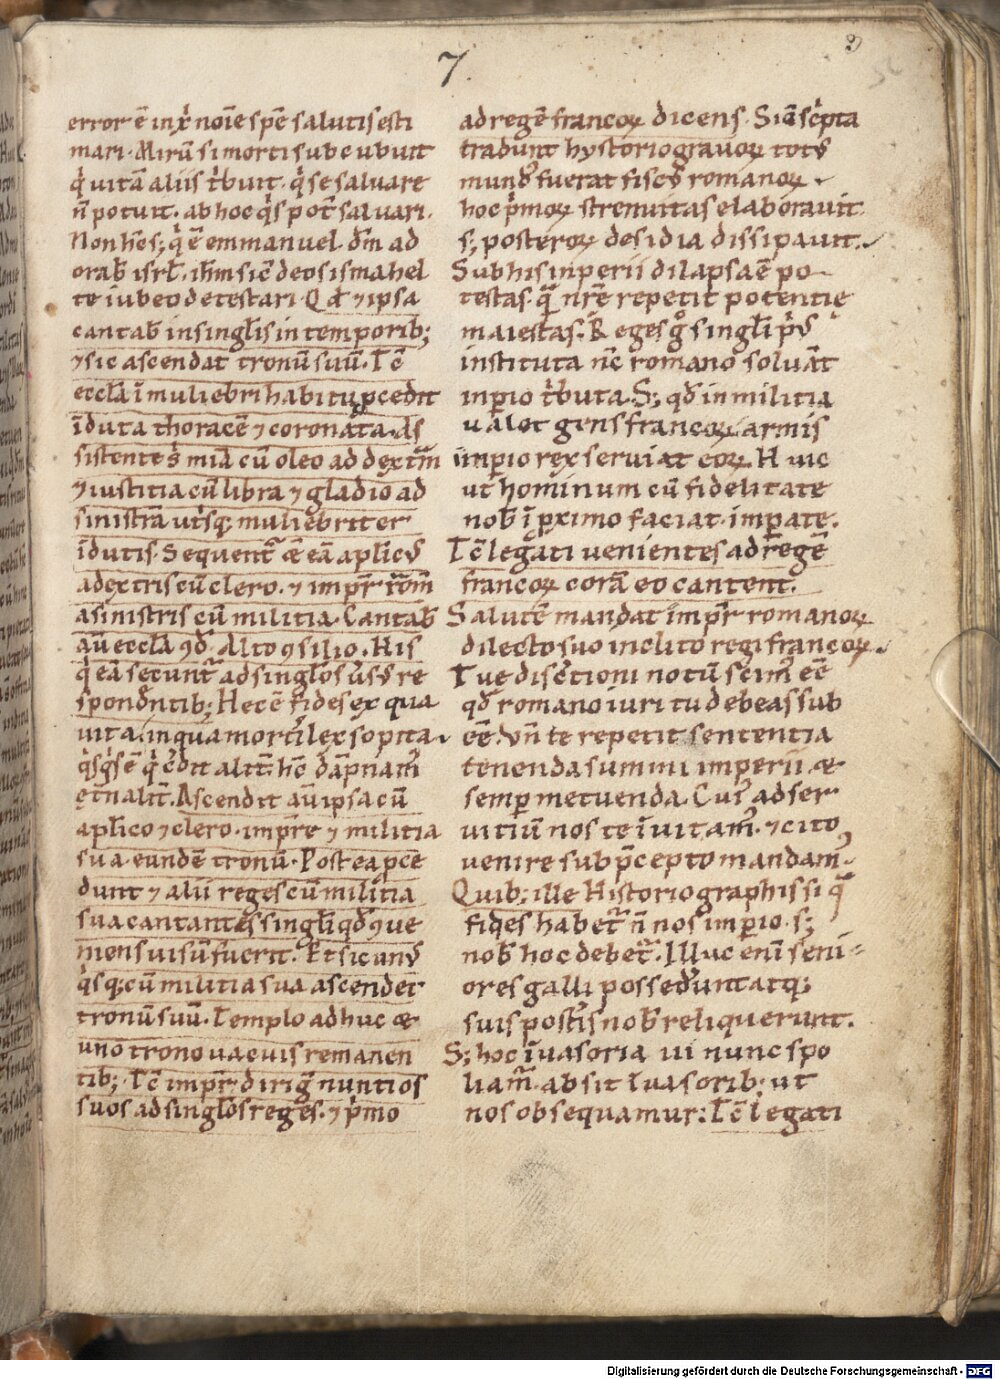 7
error ē in xp̄i noīe spē salutis esti
mari. Mirū si morti subcubuit
q̇ uitā aliis t̄buit. q̇ se saluare
n̄ potuit. ab hoc q̇s pot̄ saluari.
Non hc̄s; q̇ ē emmanuel dm̄ ad
orab̄ isrl̄. ih̄m sic̄ deos ismahel
te iubeo detestari. Qd̄ ⁊ ipsa
cantab̄ in singl̄is in temporib;
⁊ sic ascendat tronū suū. Tc̄
eccl̄a ī muliebri habitu pcedit
īduta thoracē ⁊ coronata. As
sistente s̄ mīa cū oleo ad dext̄am
⁊ iustitia cū libra ⁊ gladio ad
sinistrā utsq; muliebriter
īdutis. Sequent̄ ⁊ eā aplic̄s
a dextris cū clero. ⁊ impr̄ rom̄
a sinistris cū militia. Cantab̄
aū eccl̄a ꝯd̄. Alto ꝯsilio. His
q̇ eā secunt̄ ad singl̄os us̄s re
spondn̄tib; Hec ē fides ex qua
uita. in qua mortis lex sopita.
q̇sq̇s ē q̇ c̄dit alit̄. hc̄ dāpnam̄
et̄nalit̄. Ascendit aū ipsa cū
aplico ⁊ clero. impr̄e ⁊ militia
sua eundē tronū. Postea pce
dunt ⁊ alii reges cū militia
sua cantantes singl̄i qd̄ ꝯue
niens uisū fuerit. Et sic un̄s
q̇sq; cū militia sua ascendet
tronū suū. Templo adhuc ⁊
uno trono uacuis remanen
tib; Tc̄ impr̄ diriḡ nuntios
suos ad singl̄os reges. ⁊ p̄mo
ad regē francoꝝ dicens. Sic̄ sċpta
tradunt hystoriograuoꝝ tot̄s
mund̄s fuerat fisc̄s romanoꝝ.
hoc p̄moꝝ strenuitas elaborauit
s; posteroꝝ desidia dissipauit.
Sub his inperii dilapsa ē po
testas. q̄ nr̄e repetit potentię
maiestas. Reges g̊ singl̄i p̄s
instituta nc̄ romano soluāt
inperio t̄buta. S; qd̄ in militia
ualet gens francoꝝ. armis
inperio rex seruiat eoꝝ. Huic
ut hominum cū fidelitate
nob̄ ī pximo faciat. impate.
Tc̄ legati uenientes ad regē
francoꝝ corā eo cantent.
Salutē mandat impr̄ romanoꝝ
dilecto suo inclito regi francoꝝ.
Tue disc̄tioni notū scim̄ eē
qd̄ romano iuri tu debeas sub
eē. Vn̄ te repetit sententia
tenenda summi imperii ⁊
semp metuenda. Cuī ad ser
uitiū nos te īuitam̄. ⁊ cito
uenire sub p̄cepto mandam̄.
Quib; ille Historiographis si q̄
fides habet̄ n̄ nos inperio. s;
nob̄ hoc debet̄. Illuc enī seni
ores galli possed̄unt atq;
suis post̄is nob̄ reliquerunt.
S; hoc īuasoria ui nunc spo
liam̄. absit īuasorib; ut
nos obsequamur: Tc̄ legati
Digitalisierung gefördert durch die Deutsche Forschungsgemeinschaft - DFG